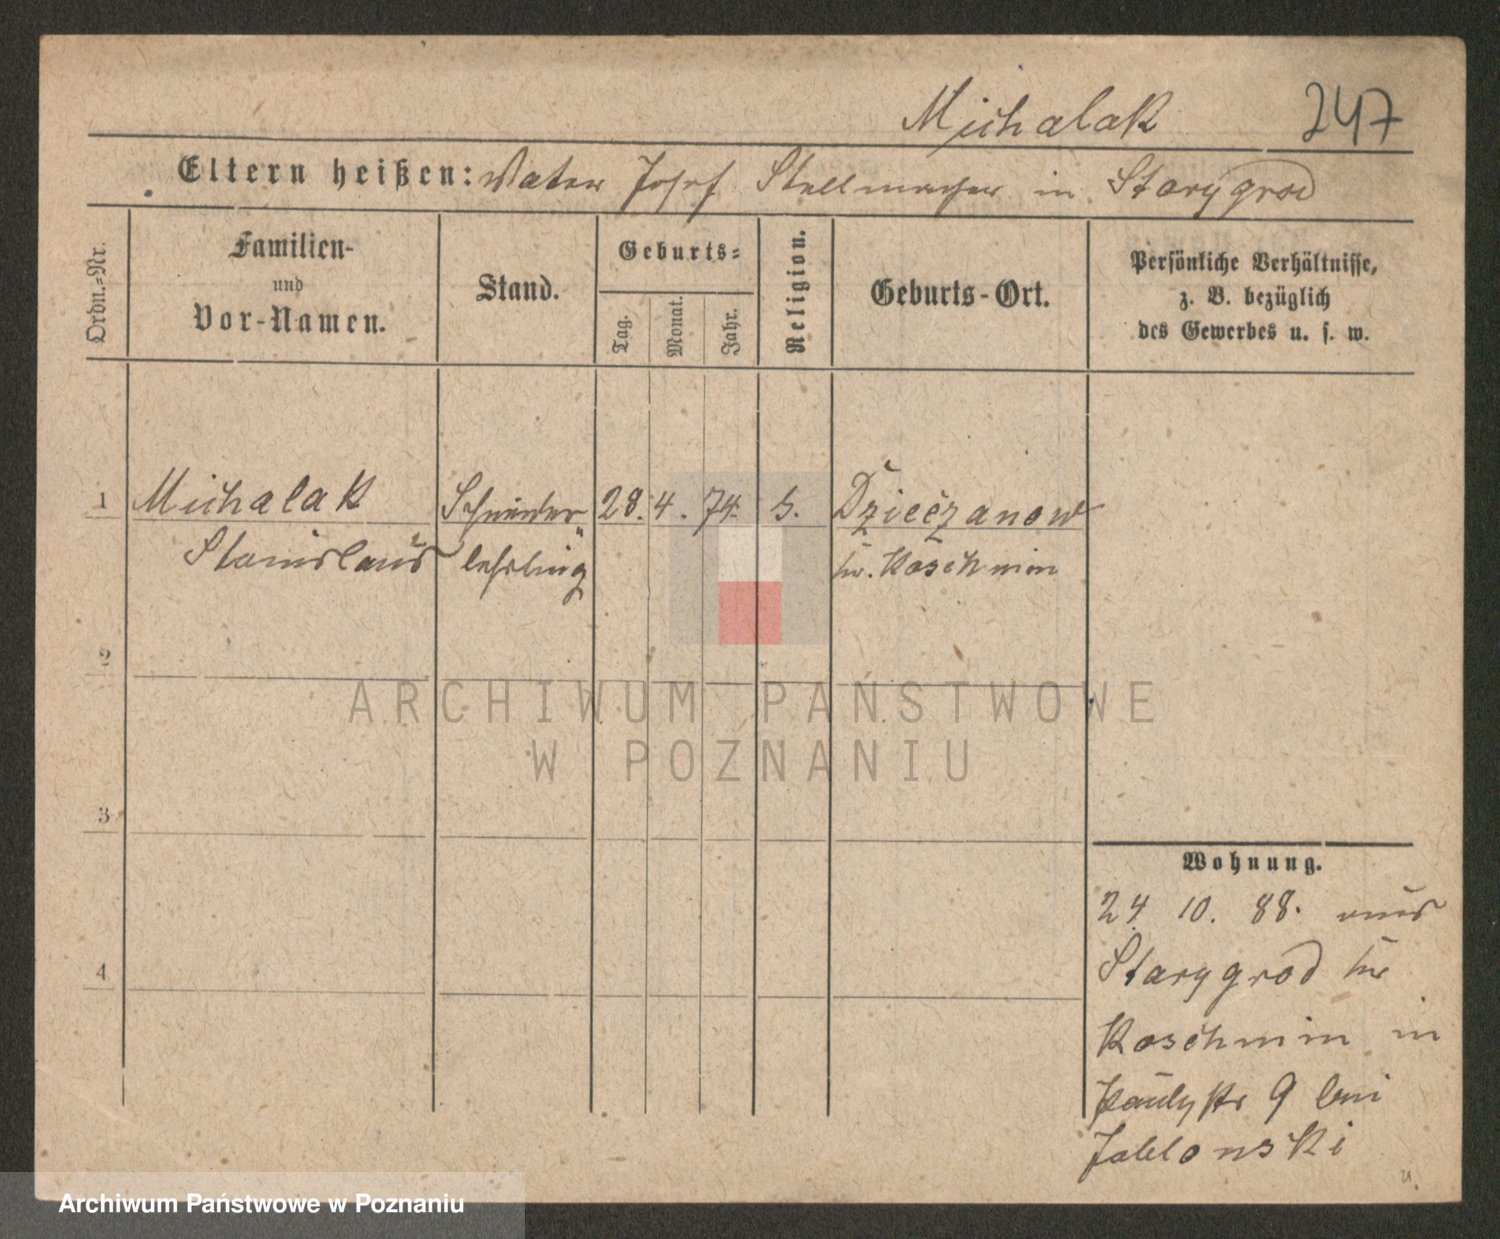 Michalak 247
Eltern heißen: Vater Josef Stellmacher in Starygrod
Ordn.-Nr.
Familien-
und
Vor-Namen.
Stand.
Geburts-
Tag.
Monat.
Jahr.
Religion.
Geburts-Ort.
Persönliche Verhältnisse,
z. B. bezüglich
des Gewerbes u. s. w.
1 Michalak Schneider- 28. 4. 74. Dzieczanow
Stanislaus lehrling Kr. Koschmin
2
3
4
Wohnung.
24 10. 88. aus
Starygrod Kr
Koschmin in
9 bei
Jablonski
ARCHIWUM PAŃSTWOWE
W POZNANIU
Archiwum Państwowe w Poznaniu